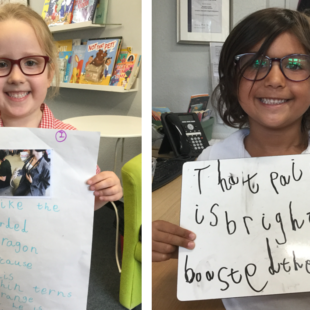 ike the
rked
ragon
cause
is
hin torn
range
That pai
is brigh
boasted the
NOT